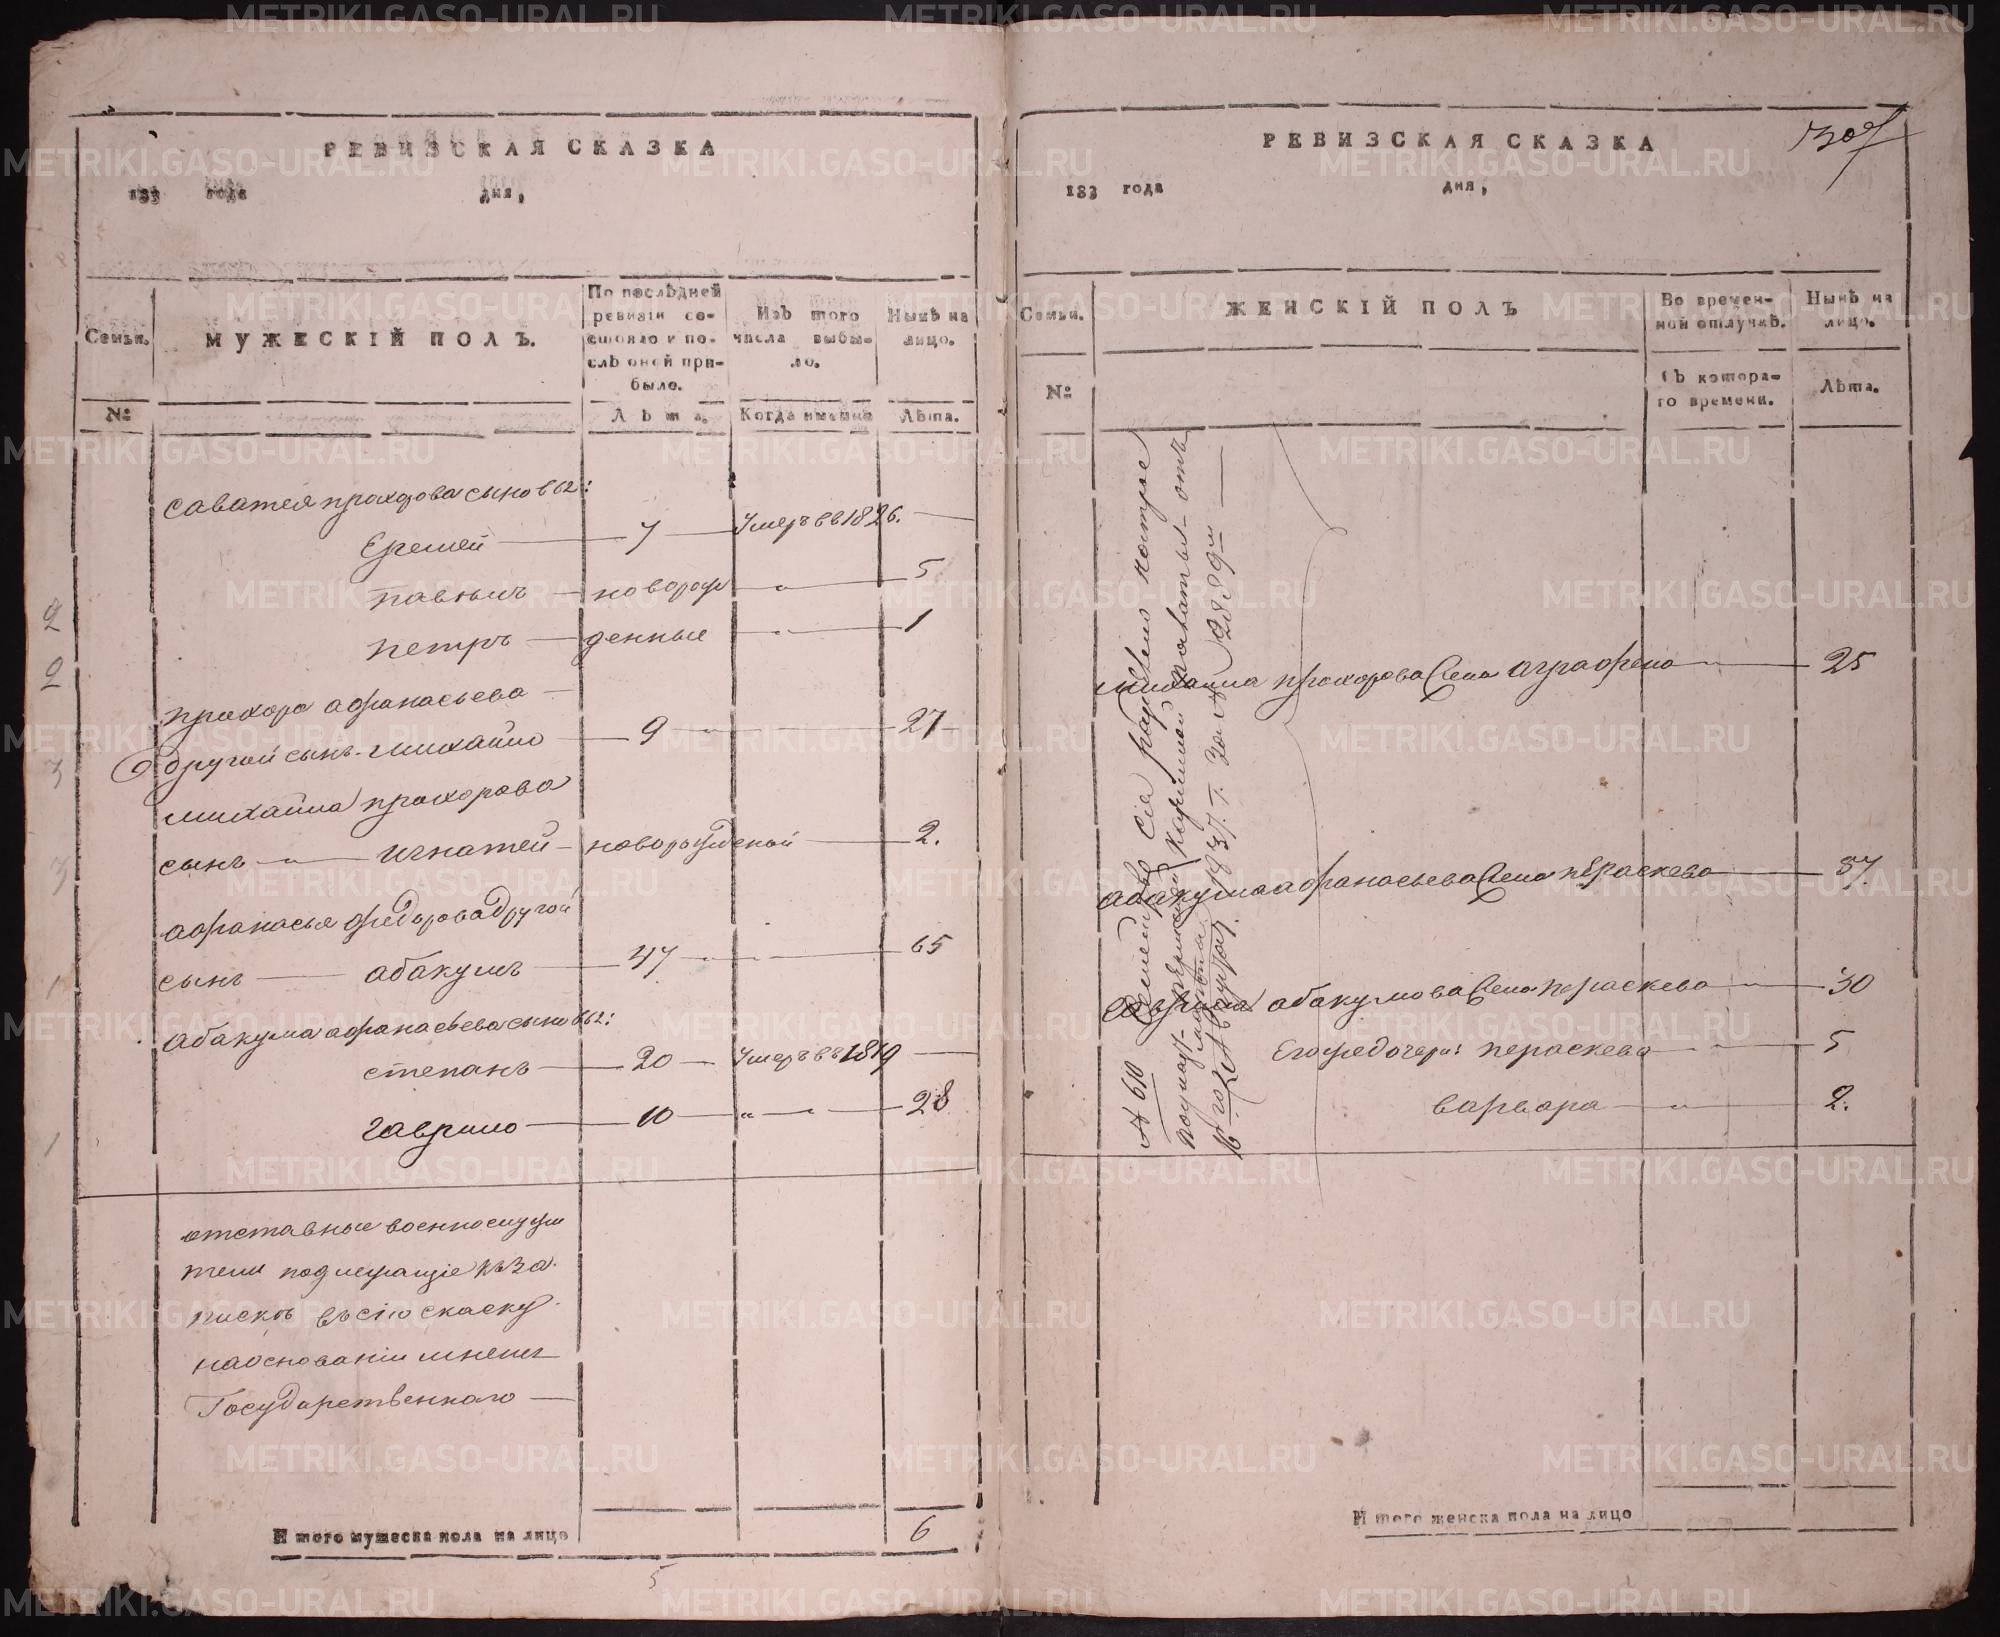 РЕВИЗСКАЯ СКАЗКА
183 года дня,
Семьи.
МУЖЕСКІЙ ПОЛЪ.
По послѣдней ревизіи состояло и послѣ оной прибыло.
Изъ того числа выбыло.
Нынѣ на лицо.
№
Лѣта.
Когда именно
Лѣта.
Саватея прохорова сыновья:
Еремей 7 Умеръ въ 1826.
павелъ новорож 5
петръ денные 1
прохора афанасьева
другой сынъ михайло 9 27
михайла прохорова
сынъ игнатей новорожденой 2.
афанасья федорова другой
сынъ абакумъ 47 65
абакума афанасьева сыновья:
степанъ 20 Умеръ въ 1819
гаврило 10 28
отставные военнослужи
тели подлежащіе къ за
пискѣ въ сію скаску
на основаніи мненія
Государственнаго
Итого мужеска пола на лицо 6
5
2
2
3
3
1
1
РЕВИЗСКАЯ СКАЗКА
183 года дня,
Семьи.
ЖЕНСКІЙ ПОЛЪ
Во временной отлучкѣ.
Нынѣ на лицо.
№
Съ котораго времени.
Лѣта.
михайла прохорова жена аграфена 25
абакума афанасьева жена пераскева 57.
гаврила абакумова жена пераскева 30
Его же дочери: пераскева 5
варвара 2.
№ 610 Семейство Сіе
отъ
1837. г. за № 28897
Итого женска пола на лицо
METRIKI.GASO-URAL.RU